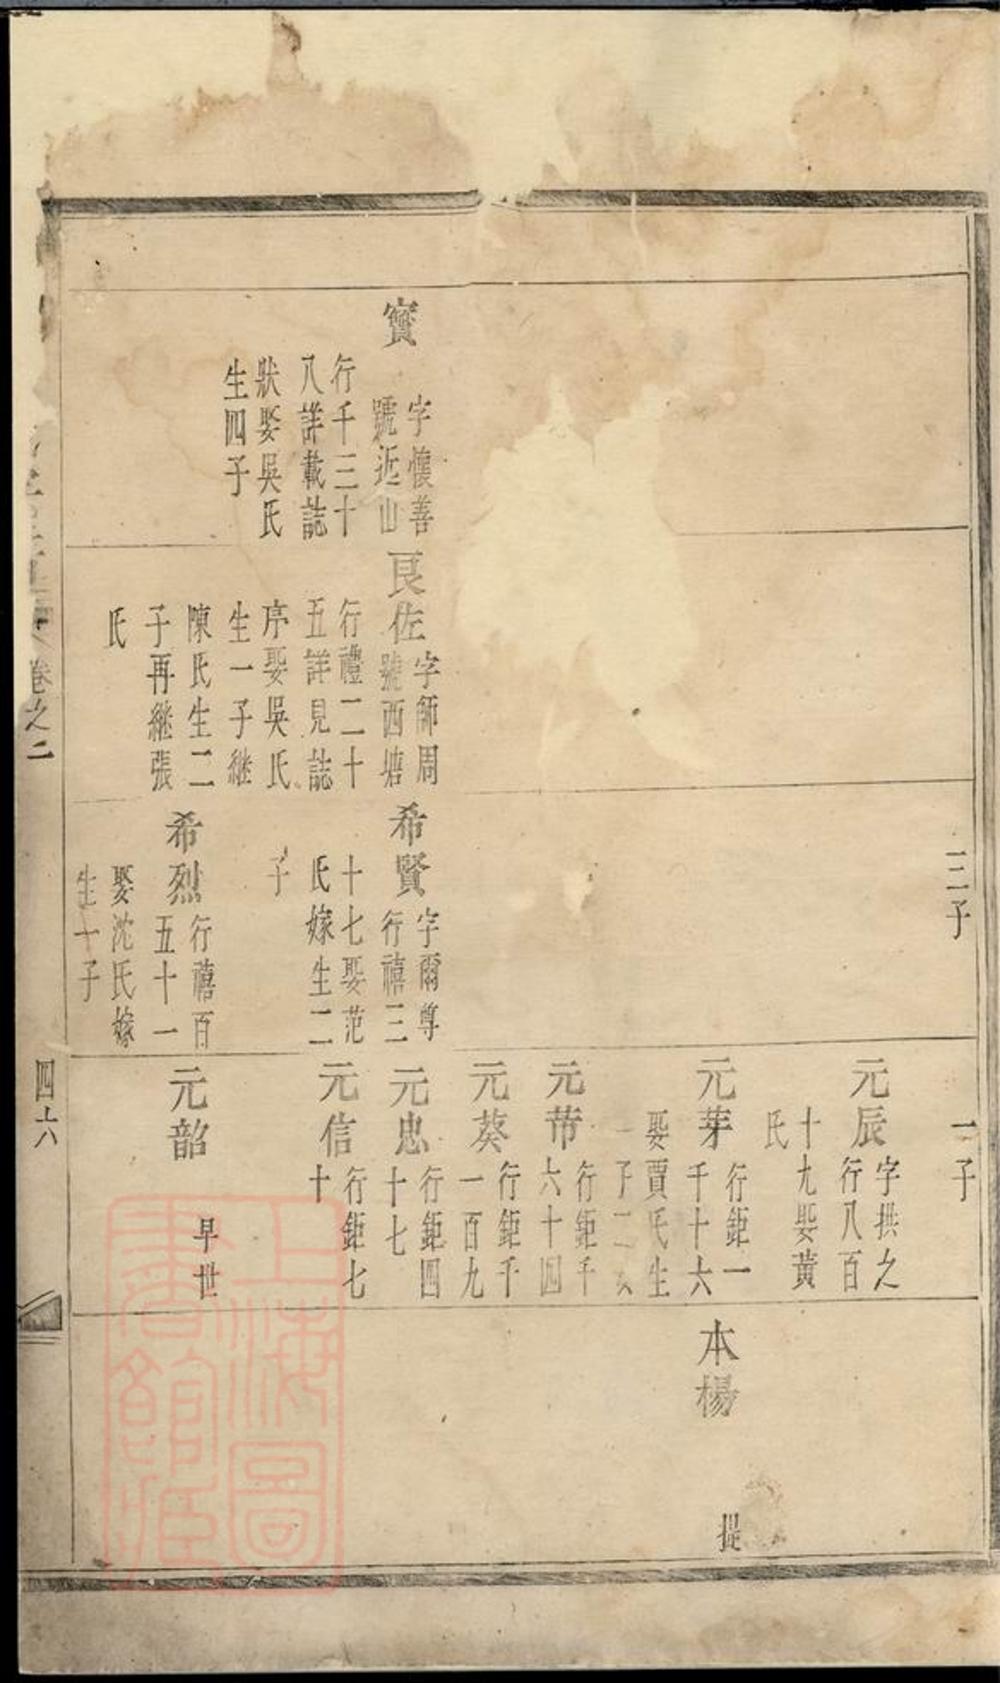 三子
一子
寳
字懐善
號近山
行千三十
八詳載誌
狀娶吳氏
生四子
良佐
字師周
號西塘
行禮二十
五詳見誌
序娶吳氏
生一子継
陳氏生二
子再継張
氏
希賢
字爾尊
行禧三
十七娶范
氏嫁生二
子
希烈
行禧百
五十一
娶沈氏嫁
生一子
元辰
字拱之
行八百
十九娶黄
氏
元芽
行鉅一
千十六
娶賈氏生
子二
元芾
行鉅千
六十四
元葵
行鉅千
一百九
元忠
行鉅四
十七
元信
行鉅七
十
元韶
早世
本楊
提
卷之二
四十六
上海圖
書館藏